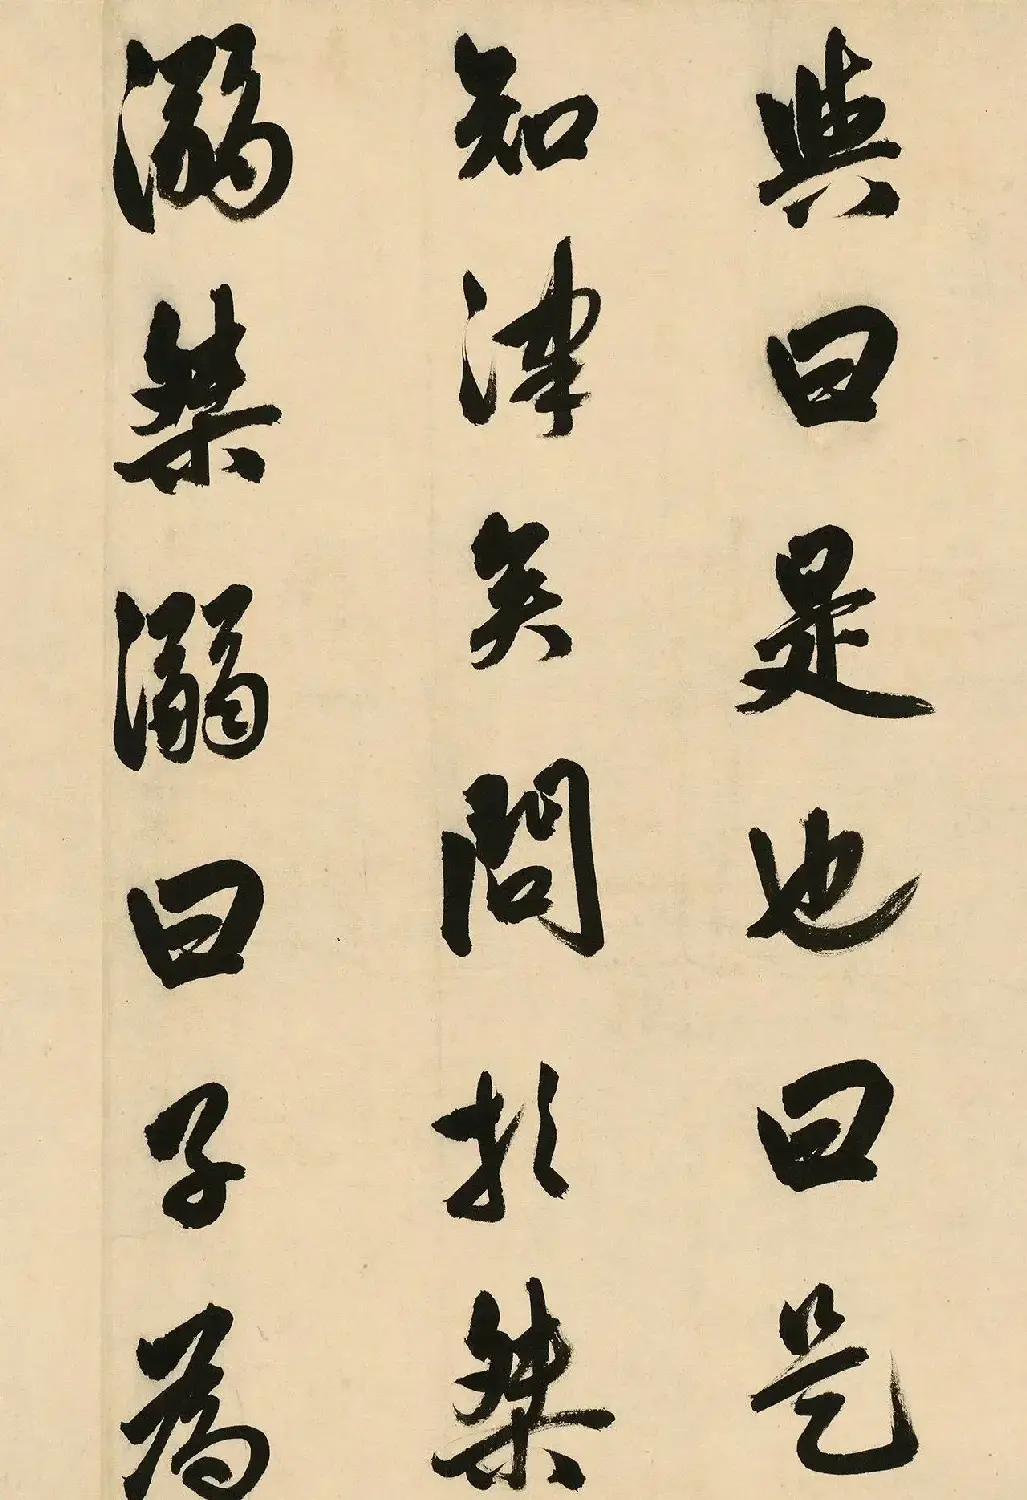 與曰是也曰是
知津矣問於桀
溺桀溺曰子為